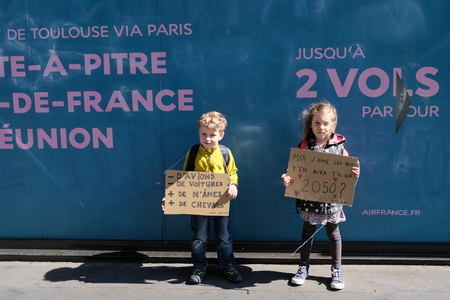 DE TOULOUSE VIA PARIS
TE-À-PITRE
-DE-FRANCE
ÉUNION
JUSQU'À
2 VOLS
PAR JOUR
AIRFRANCE.FR
- D'AVIONS
- DE VOITURES
+ DE N'ÂNES
+ DE CHEVAL
MOI J'AIME LES
Y'EN AURA EN
2050?